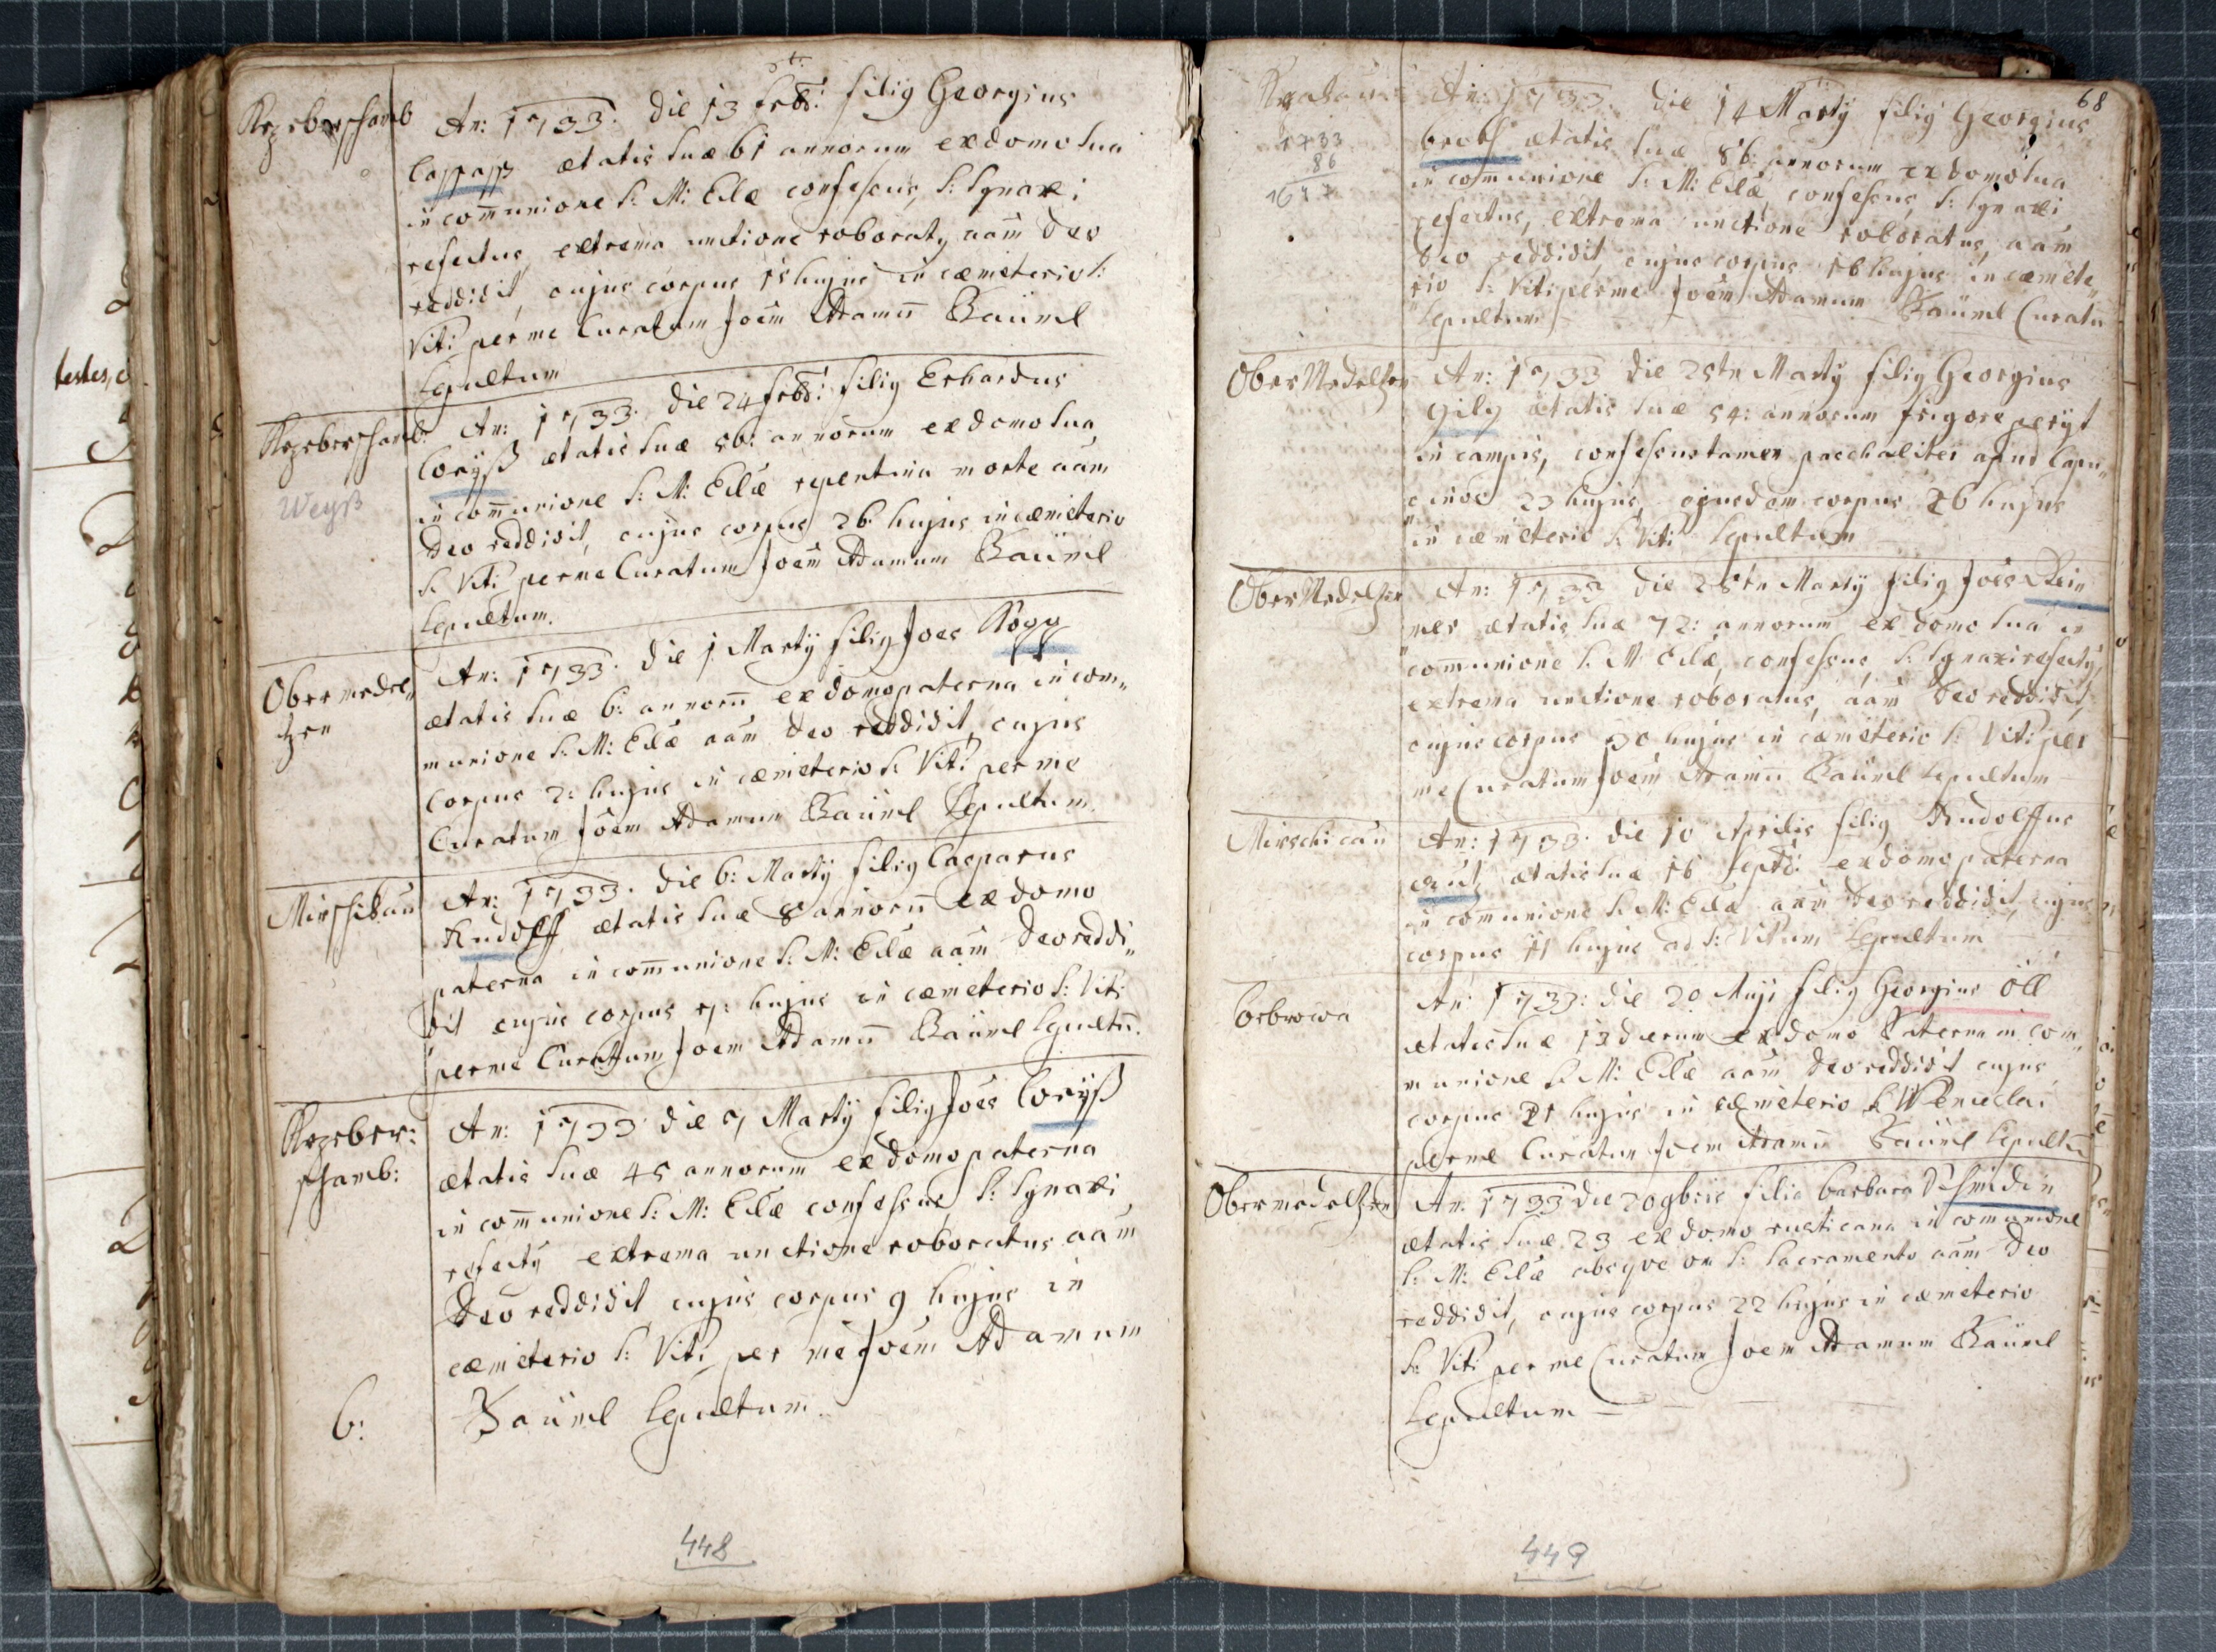 testes,
An: 1733. die 13 Febr: filiq Georgius
Caspaß ætatis suæ 61 annorum ex domo sua
in com̄unione S: M: Eclæ confessus, S: Synaxi
refectus, extrema unctione roboratq aām Deo
reddidit, cujus corpus 15 hujus in cœmiterio S:
Viti per me Curatum Joēm Adamū Baüml
sepultum
Weyß
An: 1733. die 24 Febr: filiq Erhardus
Coryß ætatis suæ 56: annorum ex domo sua
in com̄unione S: M: Eclæ repentina morte aām
Deo reddidit, cujus corpus 26 hujus in cœmiterio
S: Viti per me Curatum Joēm Adamum Baüml
sepultum.
Obermedel„
tzen
An: 1733. die 1 Martÿ filiq Joēs
ætatis suæ 6: annorū ex domo paterna in com„
munione S: M: Eclæ aām Deo reddidit, cujus
corpus 2: hujus in cœmiterio S: Viti per me
Curatum Joēm Adamum Baüml sepultum.
Mirschikau
An: 1733. die 6: Martÿ filiq Casparus
Rudolff ætatis suæ 8 annorū ex domo
paterna in com̄unione S: M: Eclæ aām Deo reddi„
dit cujus corpus 7: hujus in cœmiterio S: Viti
per me Curatum Joēm Adamū Baüml sepultū.
An: 1733 die 7 Martÿ filiq Joēs Coryß
ætatis suæ 45 annorum ex domo paterna
in com̄unione S: M: Eclæ confessus S: Synaxi
refectq extrema unctione roboratus aām
Deo reddidit, cujus corpus 9 hujus in
cœmiterio S: Viti per me Joēm Adamum
6: Baüml sepultum.
448
68
An: 1733. die 14 Martÿ filiq Georgius
ætatis suæ 86: annorum ex domo sua
1733
86
1647
in com̄unione S: M: Eclæ, confessus, S: Synaxi
refectus, extrema unctione roboratus, aām
Deo reddidit, cujus corpus 16 hujus in cœmite„
rio S: Viti per me Joēm Adamum Baüml Curatū
sepultum
Ober Medeltzen
An: 1733 die 25tn Martÿ filiq Georgius
Gily ætatis suæ 54: annorum frigore perÿt
in campis, confessus tamen paschaliter apud Capu„
cinos 23 hujus, ejusdem corpus 26 hujus
in cœmiterio S: Viti sepultum
Ober Medeltzen
An: 1733 die 28tn Martÿ filiq Joēs Bei„
mer ætatis suæ 72: annorum ex domo sua in
communione S: M: Eclæ, confessus, S: Synaxi refectq,
extrema unctione roboratus, aām Deo reddidit,
cujus corpus 30 hujus in cœmiterio S: Viti per
me Curatum Joēm Adamū Baüml sepultum
Mirschicau
An: 1733. die 10 Aprilis filiq Rudolffus
ætatis suæ 16 sept: ex domo paterna
in communione S: M: Eclæ aām Deo reddidit, cujus
corpus 11 hujus ad S: Vitum sepultum
An: 1733: die 20 Maji filiq Georgius Öll
ætatis suæ 13 dierum ex domo Paterna in com„
munione S: M: Eclæ aām Deo reddidit cujus
corpus 21 hujus in cœmiterio S: Wenceslai
per me Curatum Joem Adamū Baüml sepultū
Obermedeltzen
An: 1733 die 20 9bris filia Barbara Schmidin
ætatis suæ 23 ex domo rusticana in communione
S: M: Eclæ absque om S: Sacramento aām Deo
reddidit, cujus corpus 22 hujus in cœmiterio
S: Viti per me Curatum Joem Adamum Baüml
sepultum
449